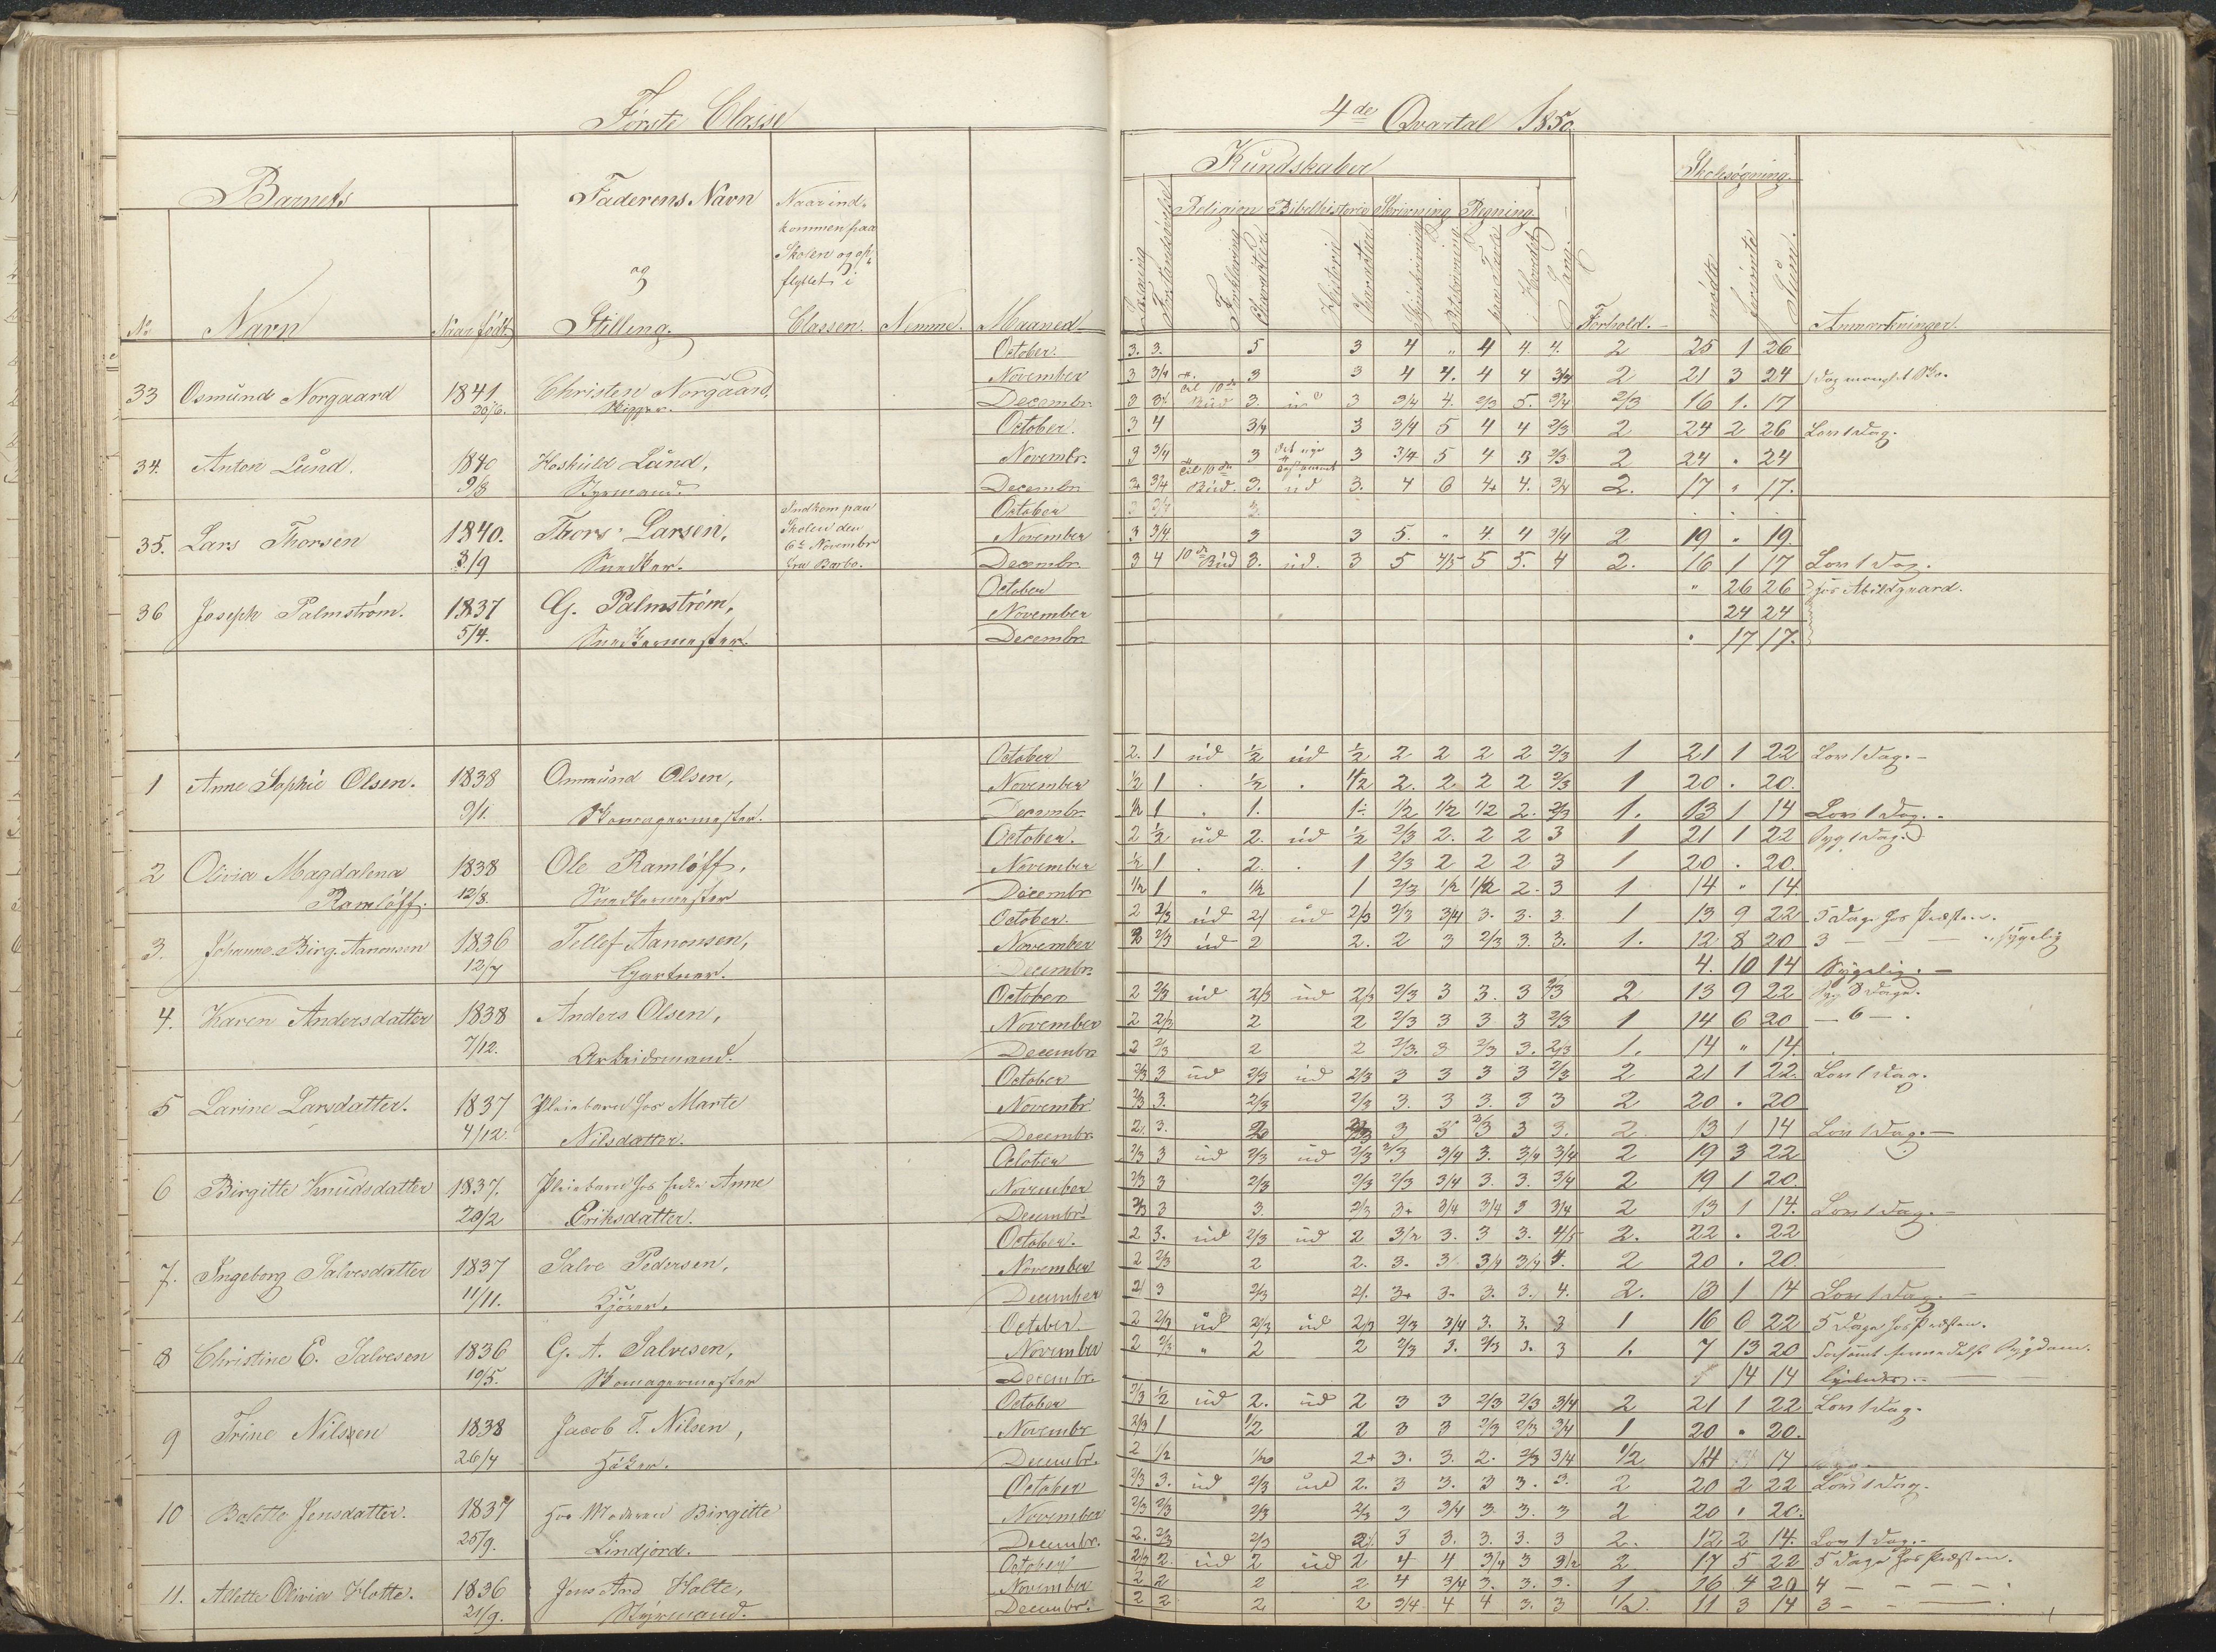 Første Classe
4de Qvartal 1850
Barnets
Faderens Navn
og
Stilling.
Naar ind-
kommen paa
Skolen og op-
flyttet i
Classen.
Nemme.
Maaned
No
Navn
Naar født
Kundskaber
Religion Bibelhistorie Skrivning Regning
Læsning
Forklaring
Characteer
Historie
Characteer
Skjønskrivning
Retskrivning
paa Tavle
i Hovedet
Sang.
Forhold.
Skolesøgning.
mødte
forsømte
Anmærkninger.
October. 3. 3. 5 3 4 " 4 4. 4. 2 25 1 26
33 Osmund Norgaard 1841 Christen Norgaard, November 3 3/4 3 3 4 4. 4 4 3/4 2 21 3 24
30/6. Skipper. Decembr. til 10de Bud 3. ud 3 3/4 4. 2/3 5. 3/4 2/3 16 1. 17
October. 3 4 3/4 3 3/4 5 4 4 2/3 2 24 2 26 Lov 1 Dag.
34. Anton Lund. 1840 Hoskuld Lund, Novembr. 3 3/4 3 3 3/4 5 4 3 2/3 2 24 . 24
9/8 Styrmand. Decembr. 3 3/4 til 10de Bud. 3. ud 3. 4 6 4+ 4. 3/4 2. 17 " 17.
Indkom paa October
35. Lars Thorsen 1840. Thors Larsen, Skolen den November 3 3/4 3 3 5. " 4. 4 3/4 2 19 " 19.
6te Novembr
8/9 Snedker. fra Barbo. Decembr. 3 4 10de Bud 3. ud. 3 5 4/5 5 5. 4 2. 16 1 17 Lov 1 Dag.
October " 26 26 hos Abildgaard.
36 Joseph Palmstrøm. 1837 G. Palmstrøm, November 24 24
5/4. Snedkermester Decembr. . 17 17.
October 2. 1 ud 1/2 ud 1/2 2 2 2 2 2/3 1 21 1 22 Lov 1 Dag.
1 Anne Sophie Olsen. 1838 Ommund Olsen, November 1/2 1 . 1/2 . 1/2 2. 2. 2 2 2/3 1 20 . 20.
9/1. Skomagermester. Decembr. 1/2 1 . 1. 1. 1/2 1/2 1/2 2. 2/3 1. 13 1 14 Lov 1 Dag.
October. 2 1/2 ud 2. ud 1/2 2/3 2. 2 2 3 1 21 1 22 Syg 1 Dag.
2 Olivia Magdalena 1838 Ole Ramløff, November 1/2 1 . 2. . 1 2/3 2 2 2 3 1 20 . 20.
Ramløff. 12/8. Snedkermester Decembr 1/2 1 " 1/2 1 2/3 1/2 1/2 2. 3 1 14 " 14
October. 2 2/3 ud 2/ ud 2/3 2/3 3/4 3. 3. 3. 1 13 9 22 5 Dage hos Præsten.
3. Johanne Birg. Aanonsen 1836 Tellef Aanonsen, November 2 2/3 ud 2 2. 2 3 2/3 3. 3. 1. 12 8 20 3 — — — sygelig
12/7 Gartner. Decembr. 4. 10 14 Sygelig.
October 2 2/3 ud 2/3 ud 2/3 2/3 3 3. 3 2/3 2 13 9 22 Syg 8 Dage.
4. Karen Andersdatter 1838 Anders Olsen, November 2 2/3 2 2 2/3 3 3 3 2/3 1 14 6 20 — 6 — .
7/12. Arbeidsmand. Decembr 2 2/3 2 2 2/3. 3 2/3 3. 2/3 1. 14 " 14.
October 2/3 3 ud 2/3 ud 2/3 3 3 3 3 2/3 2 21 1 22. Lov 1 Dag.
5 Larine Larsdatter. 1837 Pleiebarn hos Marte Novembr 2/3 3. 2/3 2/3 3. 3 3. 3 3 2 20 . 20
4/12. Nilsdatter. Decembr. 2. 3. 3 3 3 3. 2. 13 1 14 Lov 1 Dag.
October 2/3 3 ud 2/3 ud 2/3 2/3 3/4 3. 3/4 3/4 2 19 3 22
6 Birgitte Knudsdatter 1837. Pleiebarn hos Enke Anne November 2/3 3 2/3 2/3 2/3 3/4 3. 3. 3/4 2 19 1 20.
20/2 Eriksdatter. Decembr. 2/3 3 3. 2/3 3+ 3/4 3/4 3 3/4 2 13 1 14. Lov 1 Dag.
October. 2 3. ud 2/3 ud 2 3/2 3. 3 3. 4/5 2. 22 . 22
7. Ingeborg Salvesdatter 1837 Salve Pedersen, November 2 2/3 2 2. 3. 3 3/4 3/4 4. 2 20 . 20.
11/11. December 2/ 3 2/3 2/. 3+ 3- 3. 3. 4. 2. 13 1 14 Lov 1 Dag.
October. 2 2/3 ud 2/3 ud 2/3 2/3 3/4 3. 3. 3 1 16 6 22 5 Dage hos Præsten.
8 Christine E. Salvesen 1836 G. A. Salvesen, November 2 2/3 " 2 2 2/3 3. 2/3 3. 3 1. 7 13 20 Forsømt formedelst Sygdom.
10/5. Skomagermester Decembr. 14 14
October 2/3 1/2 ud 2. ud 2 3 3 2/3 2/3 3/4 2 21 1 22 Lov 1 Dag.
9 Trine Nilssen 1838 Jacob T. Nilsen, Novembr 2/3 1 1/2 2 3 3 2/3 2/3 3/4 1 20 . 20.
26/4 Decembr. 2 1/2 2+ 3. 3. 2. 2/3 3/4 1/2 14 14
October 2/3 3. ud 2/3 ud 2. 3 3. 3 3. 3. 2 20 2 22 Lov 1 Dag.
10 Bolette Jensdatter. 1837 hos Moderen Birgitte November 2/3 2/3 2/3 2/3 3 3/4 3. 3. 3 2 20 . 20.
25/9. Lindjord. Decembr. 2. 2/3 2/3 2/. 3 3. 3. 3. 3 2. 12 2 14. Lov 1 Dag.
October 2/3 2. ud 2 ud 2 4 4 3/4 3 3/2 2 17 5 22 5 Dage hos Præsten.
11. Allette Olivia Holte. 1836 Jens And Holte, November 2 2 2 2 4 3/4 3. 3. 3. 1 16 4 20 4 — — — —
21/9. Styrmand. Decembr. 2 2 2 2 3/4 4 4 3. 3 1/2. 11 3 14 3 — — —